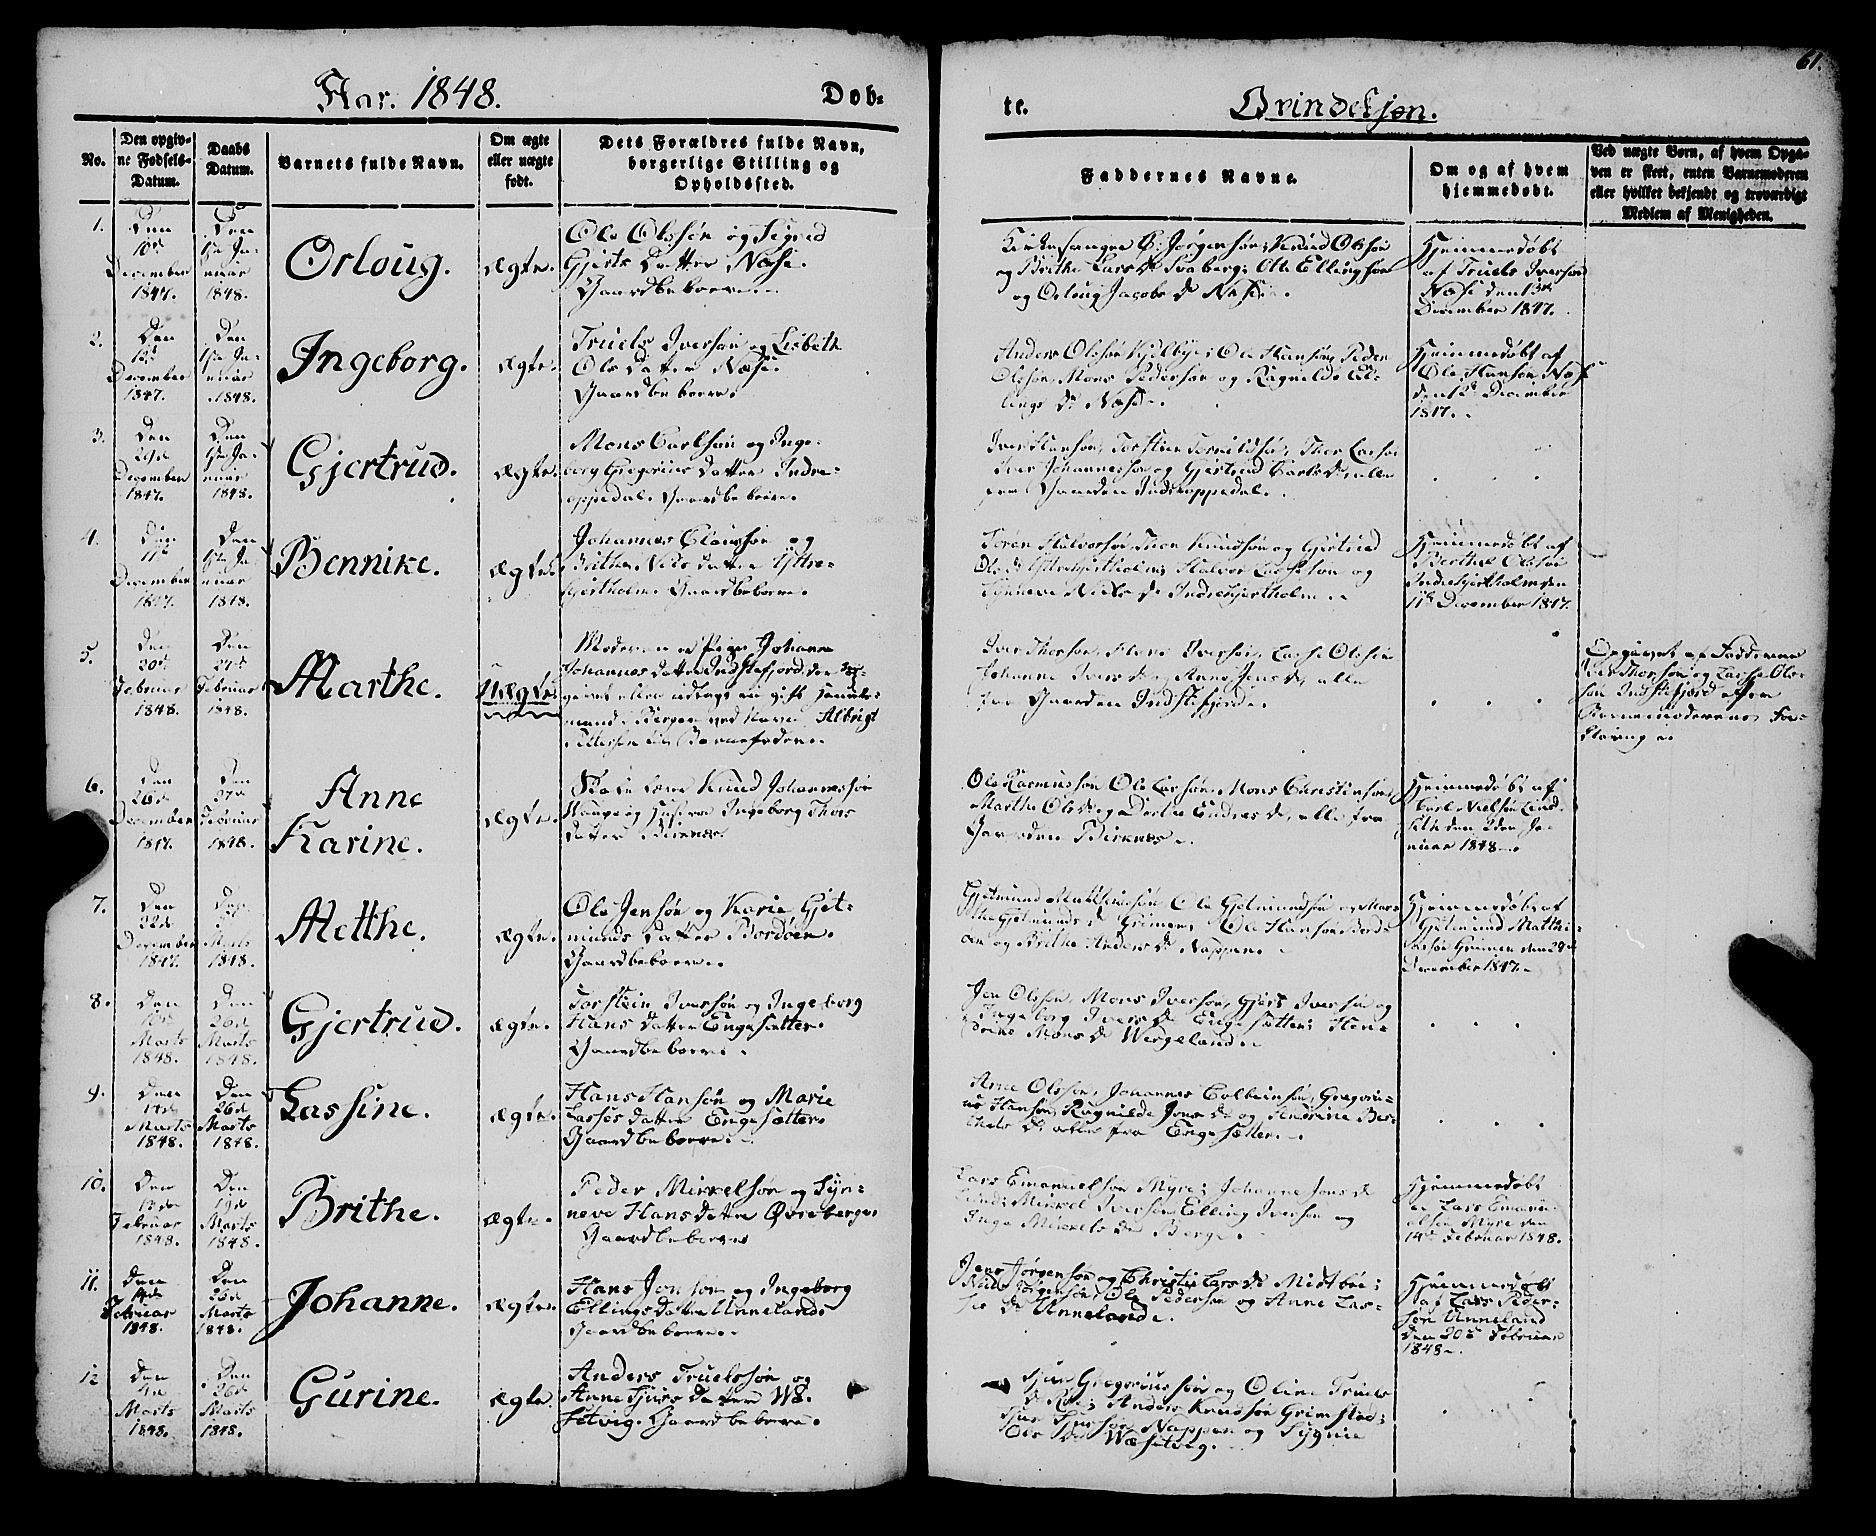 61.
Aar. 1848.
Døb-
te.
Qvindekjøn.
No.
Den opgiv-
ne Fødsels-
Datum.
Daabs
Datum.
Barnets fulde Navn.
Om ægte
eller uægte
født.
Dets Forældres fulde Navn,
borgerlige Stilling og
Opholdssted.
Faddernes Navne.
Om og af hvem
hjemmedøbt.
Ved uægte Børn, af hvem Opga-
ven er skeet, enten Barnemoderen
eller hvilket bekjendt og troværdigt
Medlem af Menigheden.
1.
Den
10de
December
1847.
Den
1ste Ja-
nuar
1848.
Orloug.
Ægte.
Ole Olssøn og Sigrid
Gjerts Datter Næse.
Gaardbeboere.
og Brithe Lars D.
og Orloug Jacobs D. Næse.
Hjemmedøbt
af Truels Iversøn
Næse den 13de
December 1847.
2.
Den
12de
December
1847.
Den
1ste Ja-
nuar
1848.
Ingeborg.
Ægte.
Truels Iversøn og Lisbeth
Ols Datter Næse.
Gaardbeboere.
Olssøn, Mons Pedersøn og Ragnilde El-
lings D. Næse.
Hjemmedøbt af
Ole Hansøn Næse
den 12te December
1847.
3.
Den
29de
December
1847.
Den
1ste Ja-
nuar
1848.
Gjertrud.
Ægte.
Mons Carlsøn og Inge-
borg Gregorius Datter Indre-
oppedal. Gaardbeboere.
Iver Johannessøn og Gjertrud Carls D., alle
fra Gaarden Indreoppedal.
4.
Den
11te
December
1847.
Den
1ste Ja-
nuar
1848.
Bennike.
Ægte.
Johannes Clausøn og
Brithe Niels Datter Yttre-
hjertholm. Gaardbeboere.
Synneve Niels D. Indrehjertholm.
Hjemmedøbt af
Berthel Olssøn
Indrehjertholm den
11te December 1847.
5.
Den
20de
Februar
1848.
Den
27de
Februar
1848.
Marthe.
Uægte.
Moderen er Pige Johanne
Johannes Datter Indstefjord, der
Iver Thorsøn, Hans Iversøn, Lasse Olssøn
Johanne Ivers D. og Anne Jens D., alle
fra Gaarden Indstefjord.
Opgivet af Fadderne
Iver Thorsøn og Lasse Ols-
søn Indstefjord efter
Barnemoderens For-
klaring.
6.
Den
26de
December
1847.
Den
27de
Februar
1848.
Anne
Karine.
Ægte.
Skolelærer Knud Johannessøn
Hauge og Hustru Ingeborg Thors
Datter Birknes.
Ole Rasmussøn, Ole Larssøn, Mons Christensøn,
Marthe Ols D. og Dorthe Endres D., alle fra
Gaarden Birknes.
Hjemmedøbt af
Carl Nielsøn Lind-
seth den 2den Ja-
nuar 1848.
7.
Den
22de
December
1847.
Den
Marts
1848.
Metthe.
Ægte.
Ole Jensøn og Karie Gjet-
munds Datter Bordøen.
Gaardbeboere.
en og Brithe Anders D. Nappen.
Hjemmedøbt af
Gjetmund Matthi-
assøn Grimen den 24de
December 1847.
8.
Den
10de
Marts
1848.
Den
26de
Marts
1848.
Gjertrud.
Ægte.
Torstein Iversøn og Ingeborg
Hans Datter Engesætter.
Gaardbeboere.
Jon Olssøn, Mons Iversøn, Gjert Iversøn og
Ingeborg Ivers D. Engesætter; Hen-
drine Mons D. Wergeland.
9.
Den
14de
Marts
1848.
Den
26de
Marts
1848.
Lassine.
Ægte.
Hans Hansøn og Marie
Lasses Datter Engesætter.
Gaardbeboere.
Arne Olssøn, Johannes Colbeinsøn, Gregori-
us Hansøn, Ragnilde Jons D. og Andrine Ber-
thels D. alle fra Engesætter.
10.
Den
12de
Februar
1848.
Den
19de
Marts
1848.
Brithe.
Ægte.
Peder Mikkelsøn og Syn-
neve Hans Datter Øvreberge.
Gaardbeboere.
Lars Emanuelsøn Myre; Johanne Jons D.
Lund; Mikkel Iversøn, Elling Iversøn og
Inge Mikkels D. Berge.
Hjemmedøbt
af Lars Emanu-
elsøn Myre den
14de Februar 1848.
11.
Den
14de
Februar
1848.
Den
26de
Marts
1848.
Johanne.
Ægte.
Hans Jonsøn og Ingeborg
Ellings Datter Anneland.
Gaardbeboere.
Jens Jørgensøn og Christie Lars D. Mistbøe;
Niels Jørgensøn, Ole Pedersøn og Anne Las-
ses D. Anneland.
Hjemmedøbt
af Lars Peder-
søn Anneland
den 20de Februar
1848.
12
Den
4de
Marts
1848.
Den
26de
Marts
1848.
Gurine.
Ægte.
Anders Truelssøn og
Anne Sjurs Datter Wæ-
setvig. Gaardbeboere.
Sjur Gregoriussøn og Oline Truels
D. Risø; Anders Knudsøn Grimstad;
Sjur Sjursøn Nappen og Sygnie
Ols D. Wæsetvig.